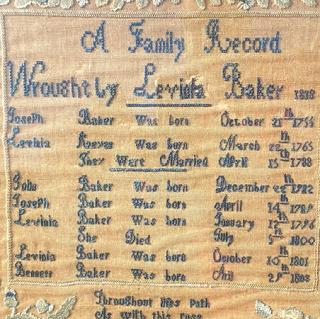 A Family Record
Wrought by Levinia Baker 1818
Joseph Baker Was born October 25th 1755
Levinia Was born March 22th 1765
They Were Married April 15th 1788
Baker Was born December
Joseph Baker Was born April 14th
Levinia Baker Was born January 17th 1796
She Died July 5th 1800
Levinia Baker Was born October 10th 1801
Bennett Baker Was born
Throughout lifes path
As with this rose